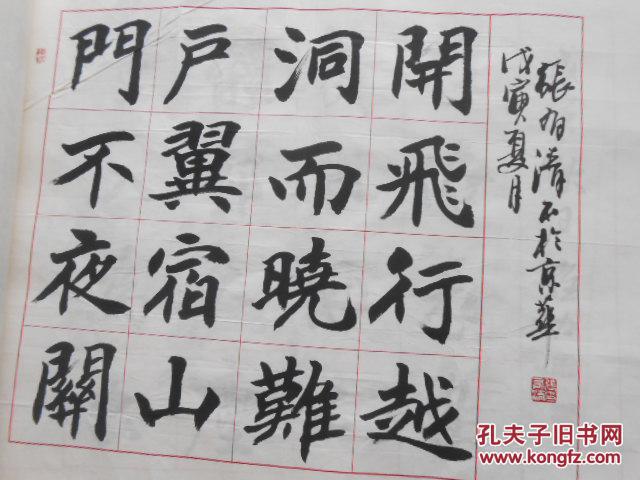 門戶洞開
不翼而飛
夜宿曉行
關山難越
戊寅夏月
張有清 於京華
孔夫子旧书网
www.kongfz.com